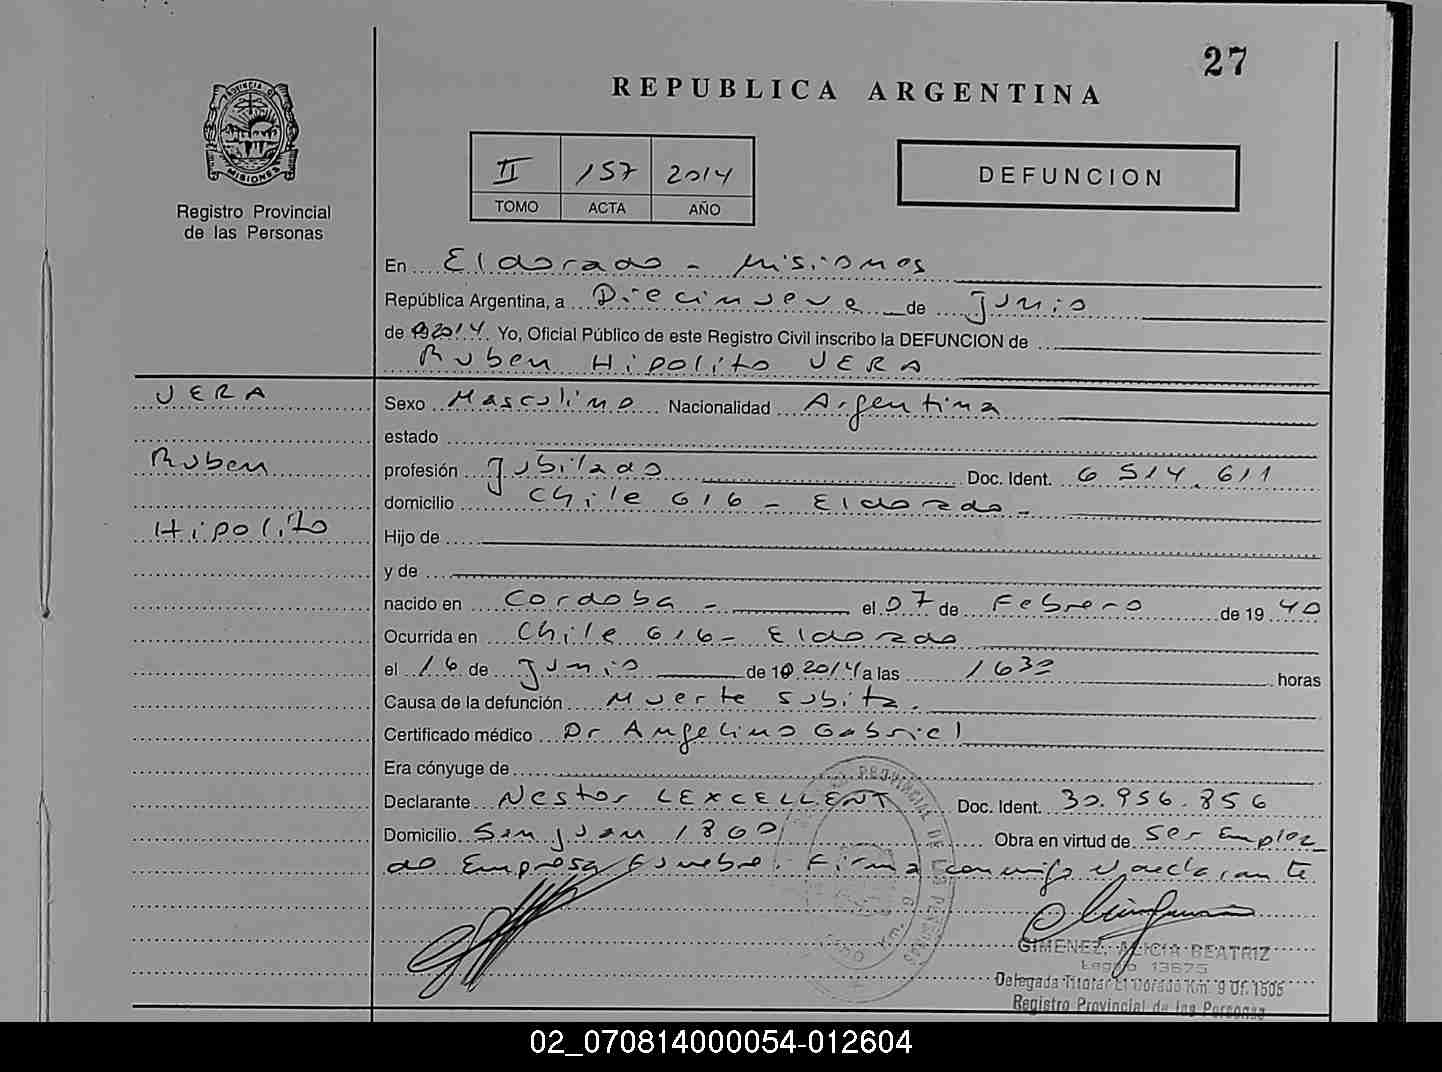 27
REPUBLICA ARGENTINA
PROVINCIA D
MISIONES
Registro Provincial
de las Personas
II 157 2014
TOMO ACTA AÑO
DEFUNCION
En Eldorado - Misiones
República Argentina, a Diecinueve de Junio
de 2014 Yo, Oficial Público de este Registro Civil inscribo la DEFUNCION de
Ruben Hipolito VERA
VERA
Ruben
Hipolito
Sexo Masculino Nacionalidad Argentina
estado
profesión Jubilado Doc. Ident. 6 514.611
domicilio Chile 616 - Eldorado -
Hijo de
y de
nacido en Cordoba - el 07 de Febrero de 19 40
Ocurrida en Chile 616 - Eldorado
el 16 de Junio de 2014 a las 1630 horas
Causa de la defunción Muerte Subita.
Certificado médico Dr Angelino Gabriel
Era cónyuge de
Declarante Nestor LEXCELLENT Doc. Ident. 30.956.856
Domicilio San Juan 1860 Obra en virtud de Ser Emplea_
do Empresa Funebre. Firma conmigo el declarante
PROVINCIAL DE LAS PERSONAS
GIMENEZ, ALICIA BEATRIZ
Legajo 13675
Delegada Titular El Dorado Km. 9 Of. 1505
Registro Provincial de las Personas
02_070814000054-012604